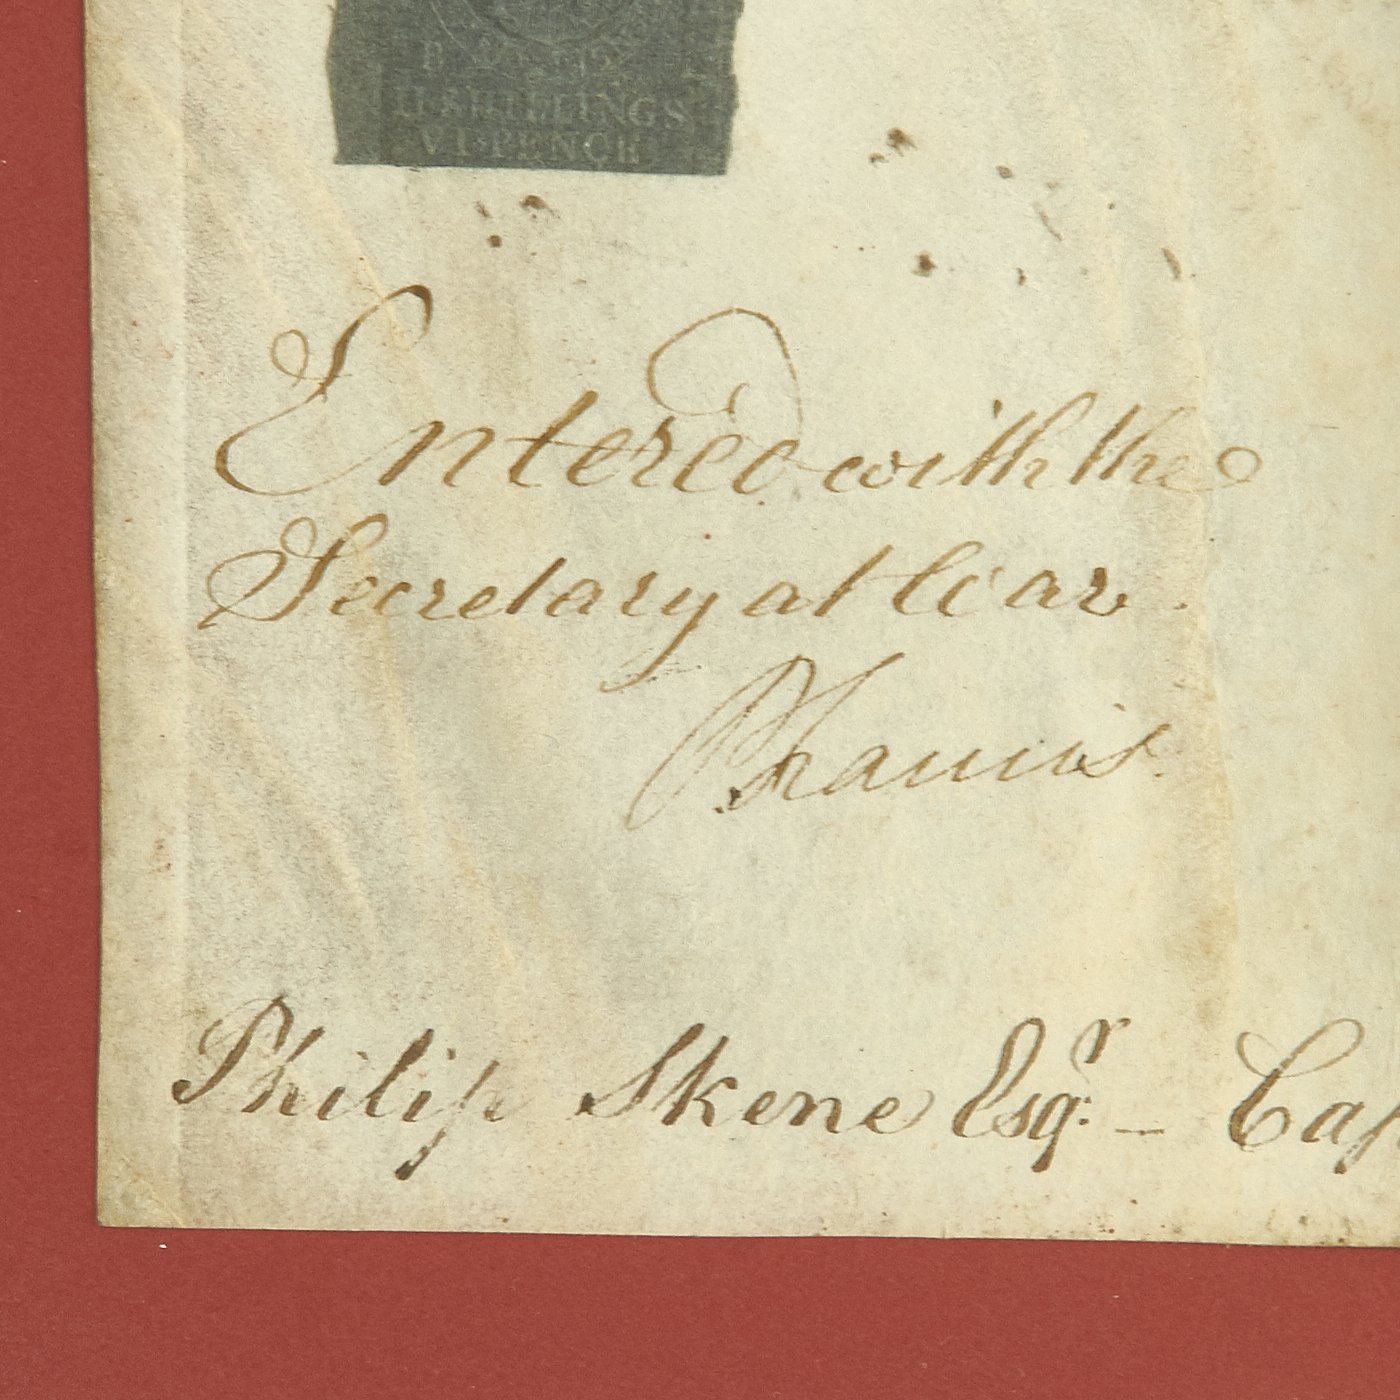 II SHILLINGS
VI PENCE
Entered with the
Secretary at War.
Philip Skene Esqr. — Cap